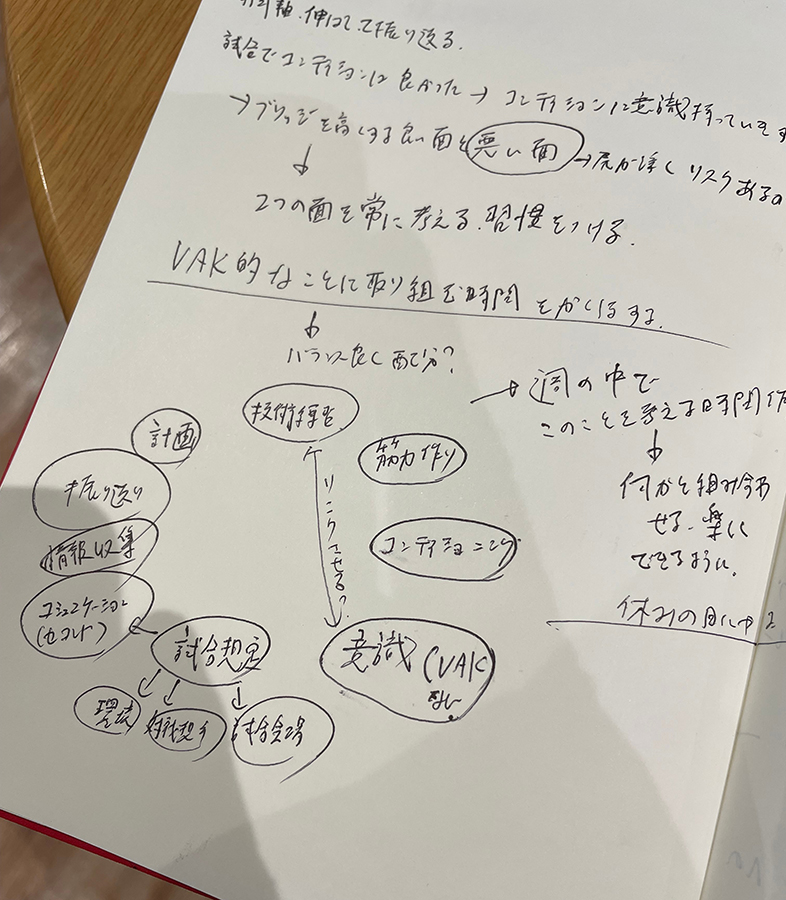 伸ばして振り返る.
試合でコンディションは良かった→コンディションに意識持っています
→ブリッジを高くする良い面と悪い面→尻が浮くリスクあるの
↓
2つの面を常に考える.習慣をつける.
VAK的なことに取り組む時間をかくほする.
↓
バランス良く配分?
→週の中で
このことを考える時間作
↓
何かと組み合わ
せる.楽に
できるように.
休みの日にやる
技術練習
筋力作り
コンディショニング
リンクさせる?
意識(VAK
など.
計画
振り返り
情報収集
コミュニケーション
(セコンド)
試合想定
環境
対戦相手
試合会場